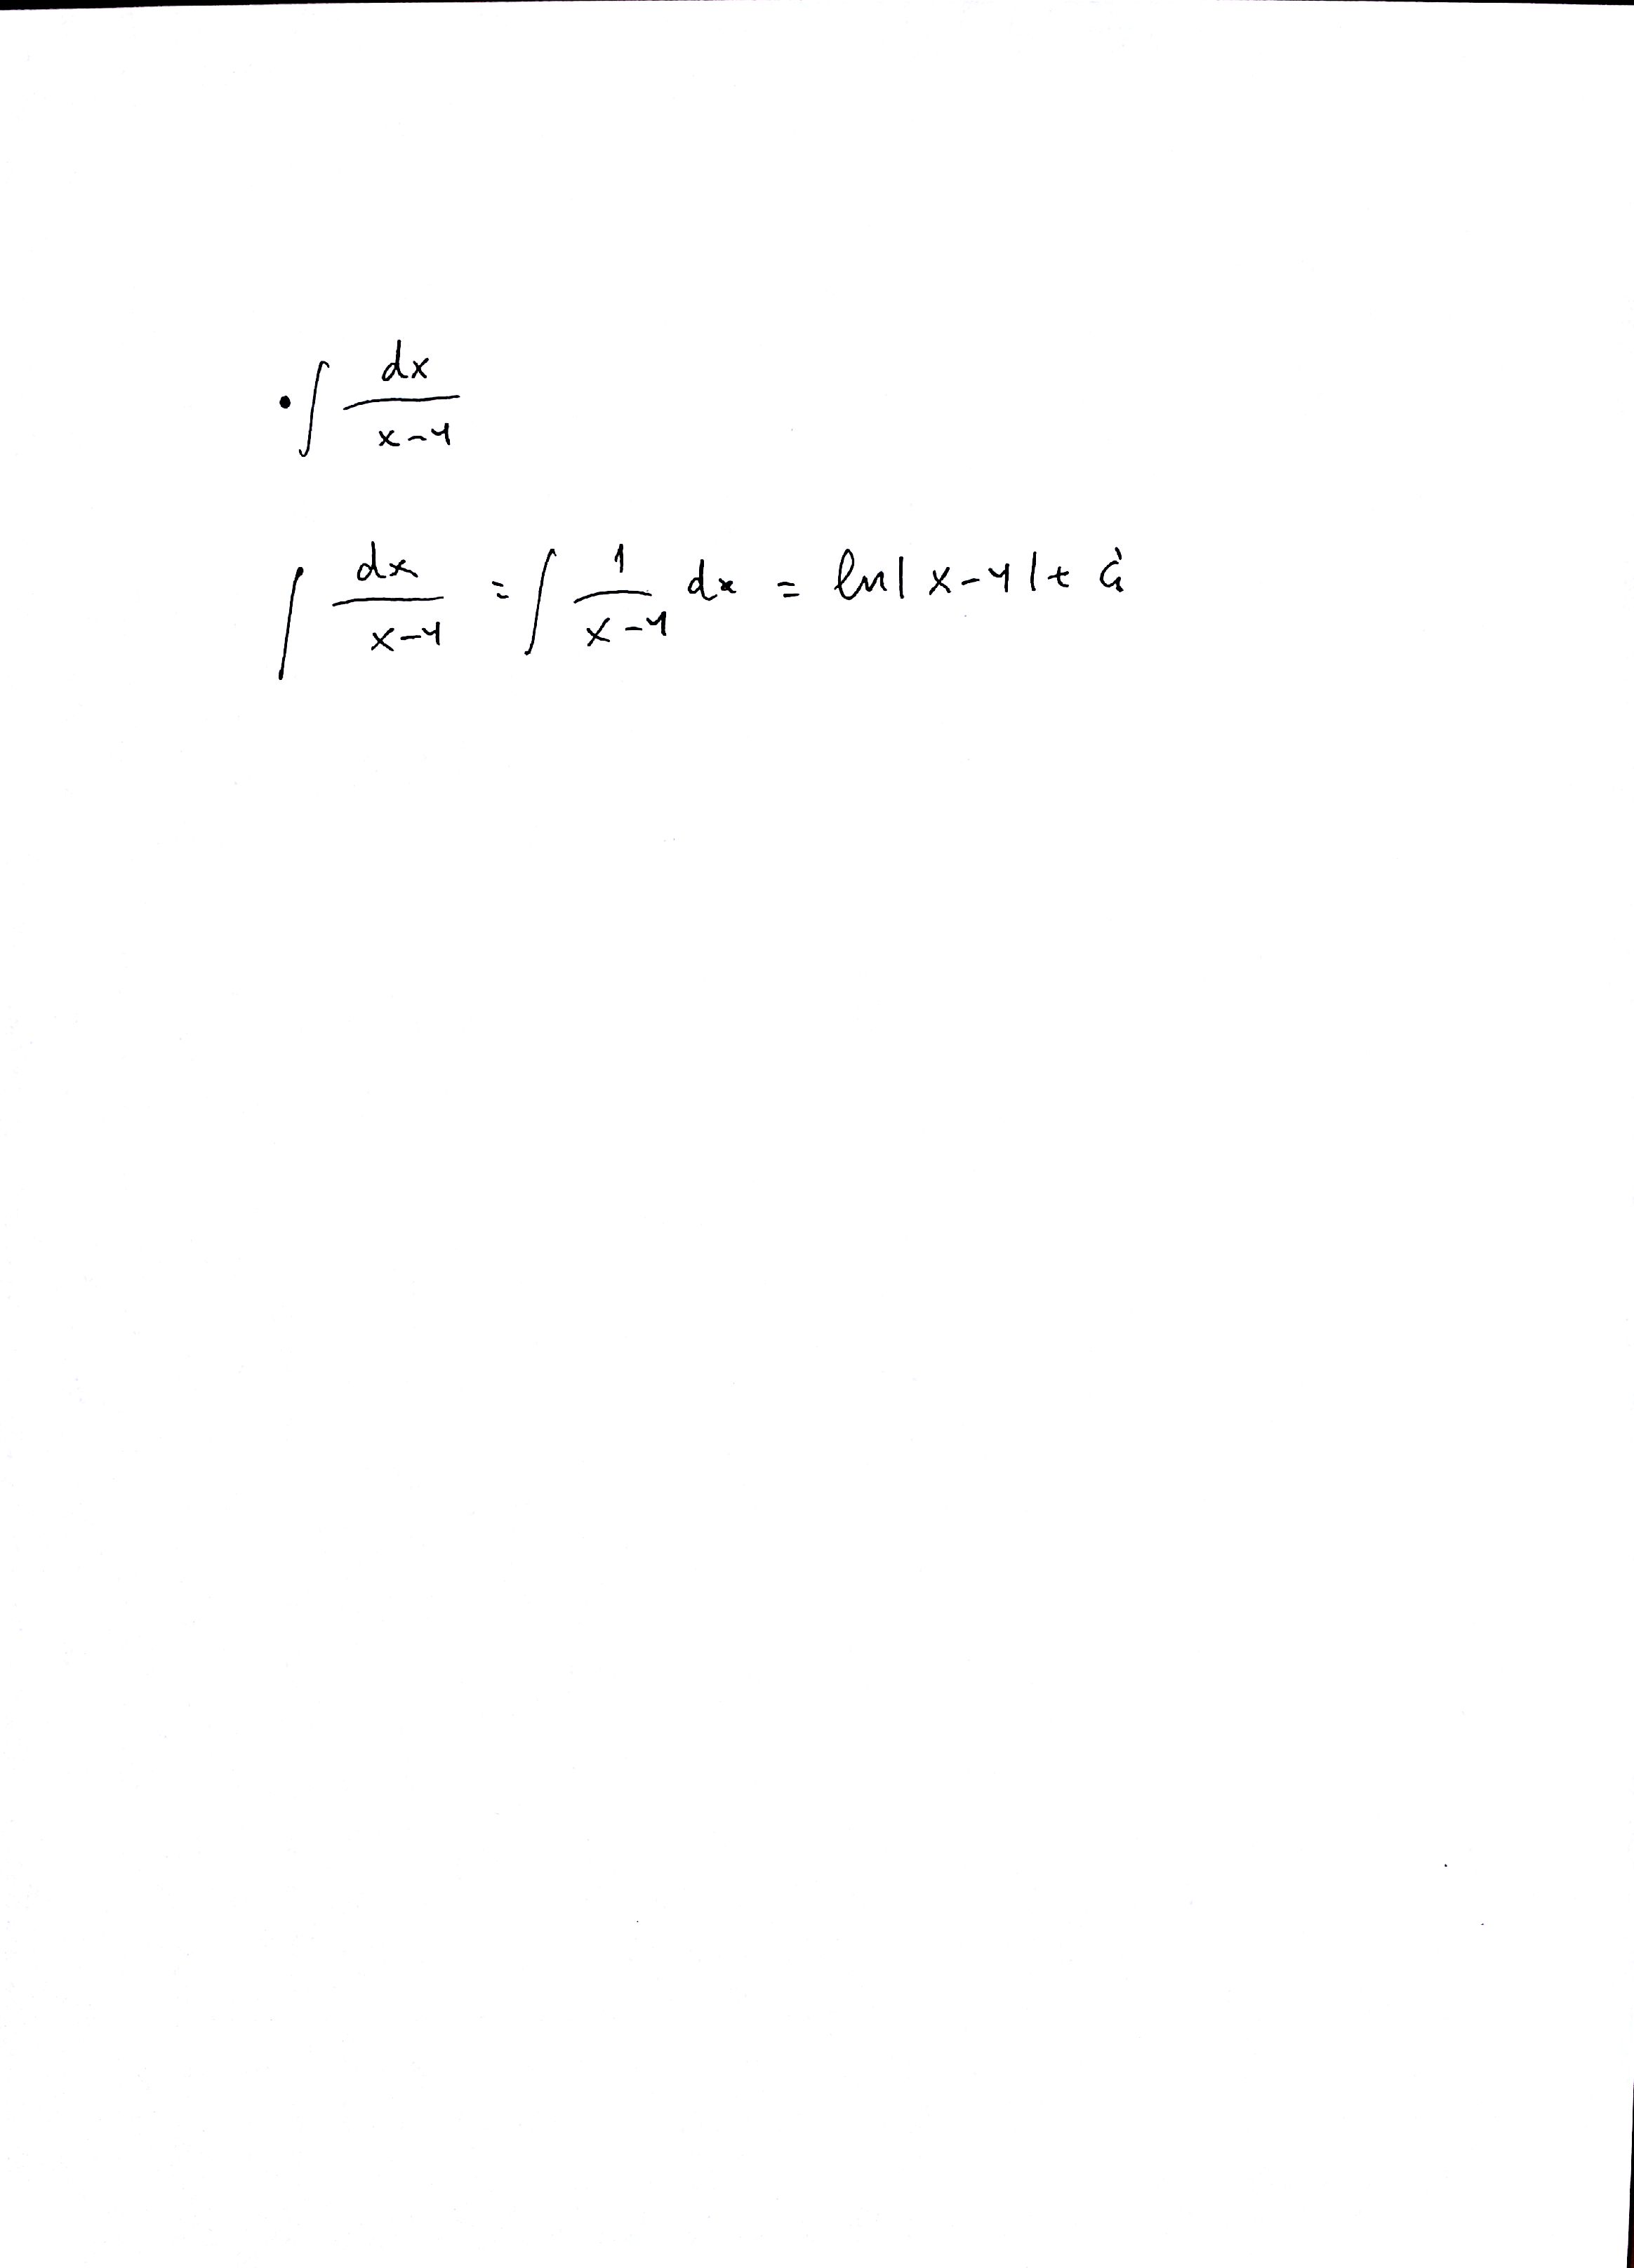 • ∫ dx / (x-4)
∫ dx / (x-4) = ∫ 1 / (x-4) dx = ln|x-4| + C